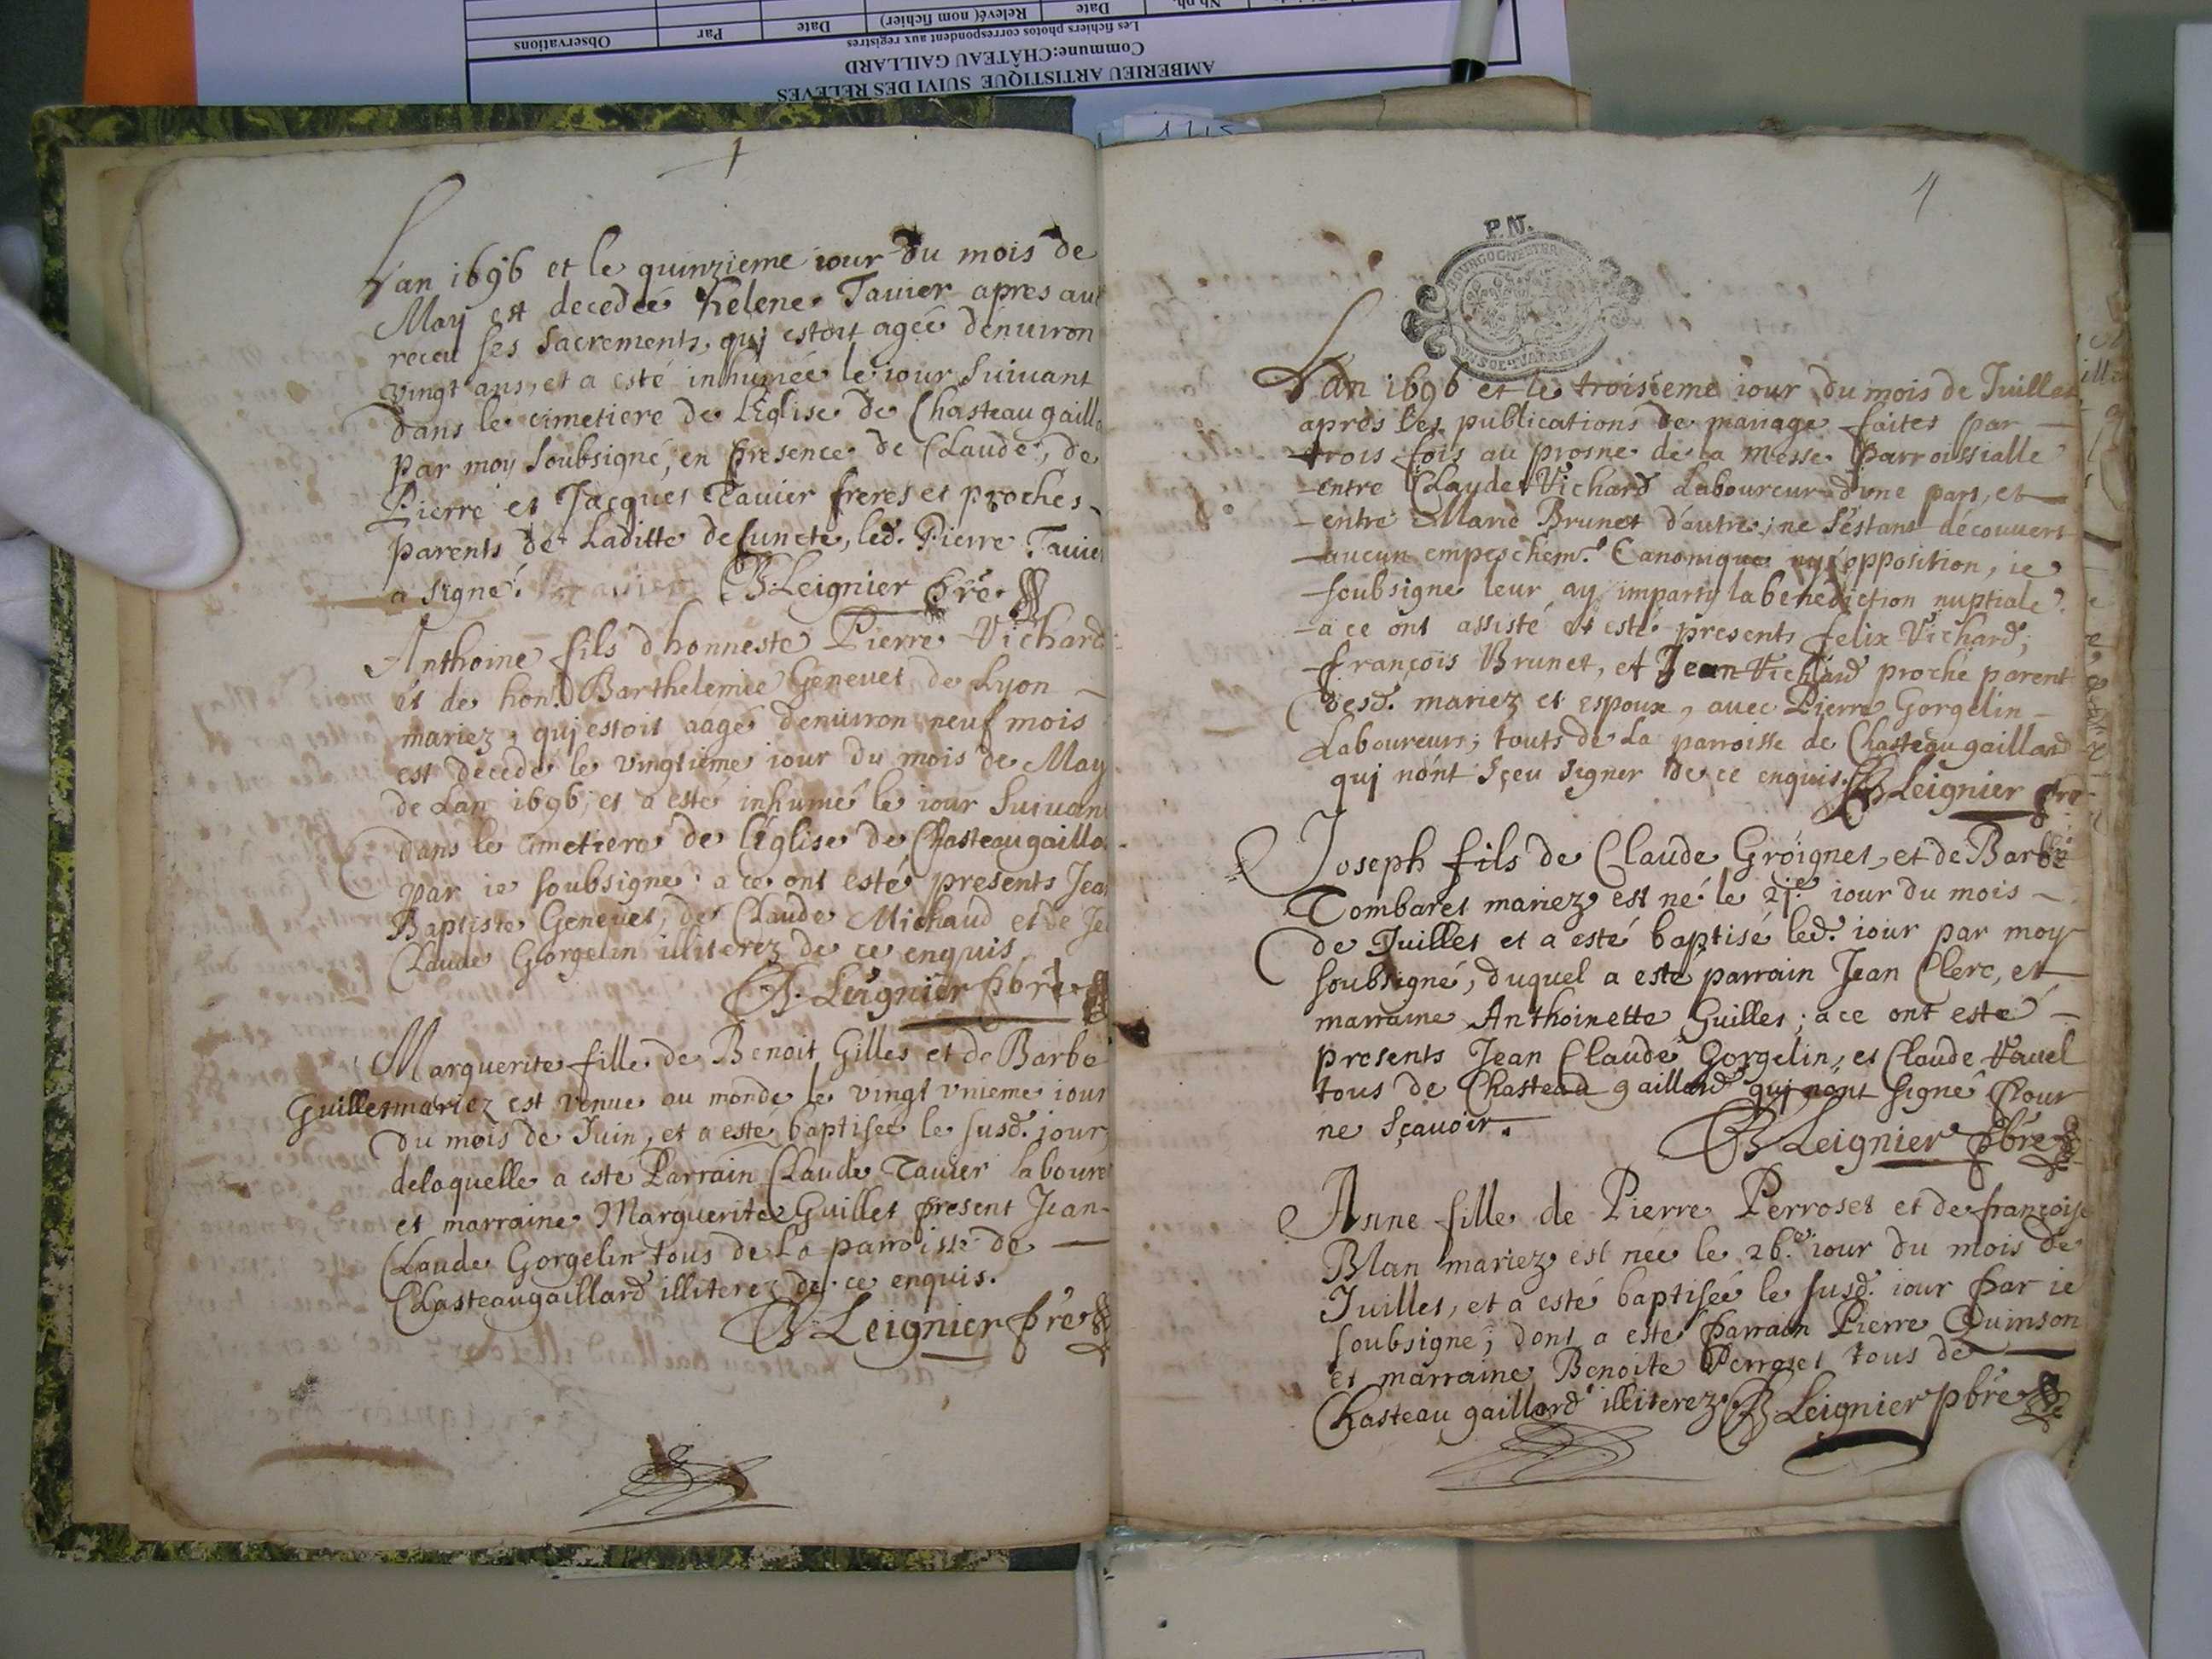 AMBERIEU ARTISTIQUE SUIVI DES RELEVES
Commune:CHÂTEAU GAILLARD
Les fichiers photos correspondent aux registres
Date Relevé( nom fichier) Date Par Observations
L'an 1696 et le quinzieme iour du mois de
May est decedée helene Tavier apres au
receu ses Sacrements, quj estoit agée d'enuiron
vingt ans, et a esté inhumée le iour Suiuant
dans le cimetiere de l'Eglise de Chasteaugailla
par moy Soubsigné, en presence de Claude, de
Pierre et Jacques Tavier freres et proches
parents de Laditte defuncte, led. Pierre Tavier
a signé. B. Leignier pbre
Anthoine fils d'honneste Pierre Vichard
et de hon. Barthelemie Genevet de Lyon
mariez, quj estoit aagé d'enuiron neuf mois
est decedé le vingtieme iour du mois de May
de Lan 1696, et a esté inhumé le iour Suiuan
dans le cimetiere de l'Eglise de Chasteaugailla
par ie soubsigné: a ce ont esté presents Jea
Baptiste Genevet, de Claude Michaud et de Je
Claude Gorgelin illiterez de ce enquis
B. Leignier pbre
Marguerite fille de Benoit Gilles et de Barbe
Guillet mariez est venue au monde le vingt vnieme iour
du mois de Juin, et a esté baptisée le susd. jour
delaquelle a esté Parrain Claude Tavier laboure
et marraine Marguerite Guillet present Jean
Claude Gorgelin tous de la parroisse de
Chasteaugaillard illiterez de ce enquis.
B. Leignier pbre
P.N.
L'an 1696 et le troisieme iour du mois de Juillet
aprés les publications de mariage faites par
trois fois au prosne de la Messe Parroissialle
entre Claude Vichard Laboureur d'une part, et
entre Marie Brunet d'autre; ne s'estant découvert
aucun empeschem.t Canonique ny opposition, ie
soubsigné leur ay imparty la benediction nuptiale.
a ce ont assisté et esté presents felix Vichard,
françois Brunet, et Jean Vichard proche parent
desd. mariez et espoux, avec Pierre Gorgelin
Laboureurs; touts de La parroisse de Chasteaugaillard
quj nont Sçeu signer de ce enquis. B Leignier pbre
Joseph fils de Claude Groignet, et de Barbe
Tombaret mariez est né le 21.e iour du mois
de Juillet et a esté baptisé led. iour par moy
soubsigné, duquel a esté parrain Jean Clerc, et
marraine Anthoinette Guillet; a ce ont esté
presents Jean Claude Gorgelin, et Claude Tavel
tous de Chasteau gaillard quj nont signé Pour
ne Sçavoir.
B Leignier pbre
Anne fille de Pierre Perroset et de françoise
Blan mariez est née le 26.e iour du mois de
Juillet, et a esté baptisée le susd. iour par ie
soubsigné; dont a esté parrain Pierre Quinson
et marraine Benoite Perroset tous de
Chasteau gaillard illiterez B Leignier pbre